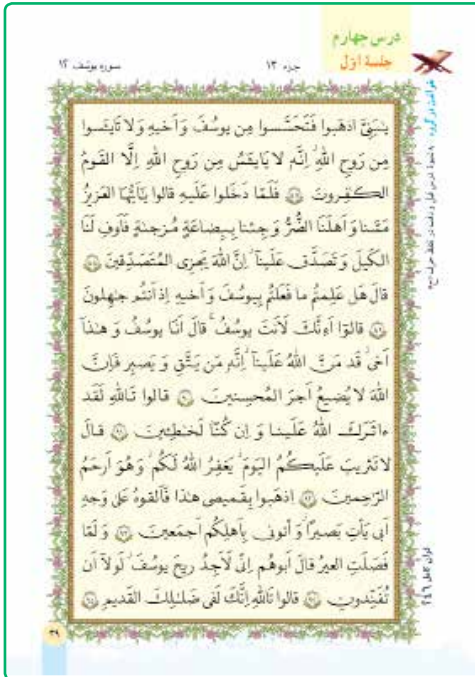 درس چهارم
جلسهٔ اوّل
جزء ۱۳
سوره یوسف ۱۲
یٰبَنِیَّ اذهَبوا فَتَحَسَّسوا مِن یوسُفَ وَ اَخیهِ وَ لا تَایـَٔسوا
مِن رَوحِ اللّٰهِ اِنَّهٗ لا یَایـَٔسُ مِن رَوحِ اللّٰهِ اِلَّا القَومُ
الکٰفِرونَ ﴿۸۷﴾ فَلَمّا دَخَلوا عَلَیهِ قالوا یٰاَیُّهَا العَزیزُ
مَسَّنا وَ اَهلَنَا الضُّرُّ وَ جِئنا بِبِضاعَةٍ مُزجٰىةٍ فَاَوفِ لَنَا
الکَیلَ وَ تَصَدَّق عَلَینا اِنَّ اللّٰهَ یَجزِی المُتَصَدِّقینَ ﴿۸۸﴾
قالَ هَل عَلِمتُم ما فَعَلتُم بِیوسُفَ وَ اَخیهِ اِذ اَنتُم جٰهِلونَ
﴿۸۹﴾ قالوا اَءِنَّکَ لَاَنتَ یوسُفُ قالَ اَنَا یوسُفُ وَ هٰذا
اَخی قَد مَنَّ اللّٰهُ عَلَینا اِنَّهٗ مَن یَتَّقِ وَ یَصبِر فَاِنَّ
اللّٰهَ لا یُضیعُ اَجرَ المُحسِنینَ ﴿۹۰﴾ قالوا تَاللّٰهِ لَقَد
ءاثَرَکَ اللّٰهُ عَلَینا وَ اِن کُنّا لَخٰطِـٔینَ ﴿۹۱﴾ قالَ
لا تَثریبَ عَلَیکُمُ الیَومَ یَغفِرُ اللّٰهُ لَکُم وَ هُوَ اَرحَمُ
الرّٰحِمینَ ﴿۹۲﴾ اِذهَبوا بِقَمیصی هٰذا فَاَلقوهُ عَلیٰ وَجهِ
اَبی یَأتِ بَصیرًا وَ أتونی بِاَهلِکُم اَجمَعینَ ﴿۹۳﴾ وَ لَمّا
فَصَلَتِ العیرُ قالَ اَبوهُم اِنّی لَاَجِدُ ریحَ یوسُفَ لَولا اَن
تُفَنِّدونِ ﴿۹۴﴾ قالوا تَاللّٰهِ اِنَّکَ لَفی ضَلٰلِکَ القَدیمِ ﴿۹۵﴾
قرآن کامل ۲۴۶
۳۹